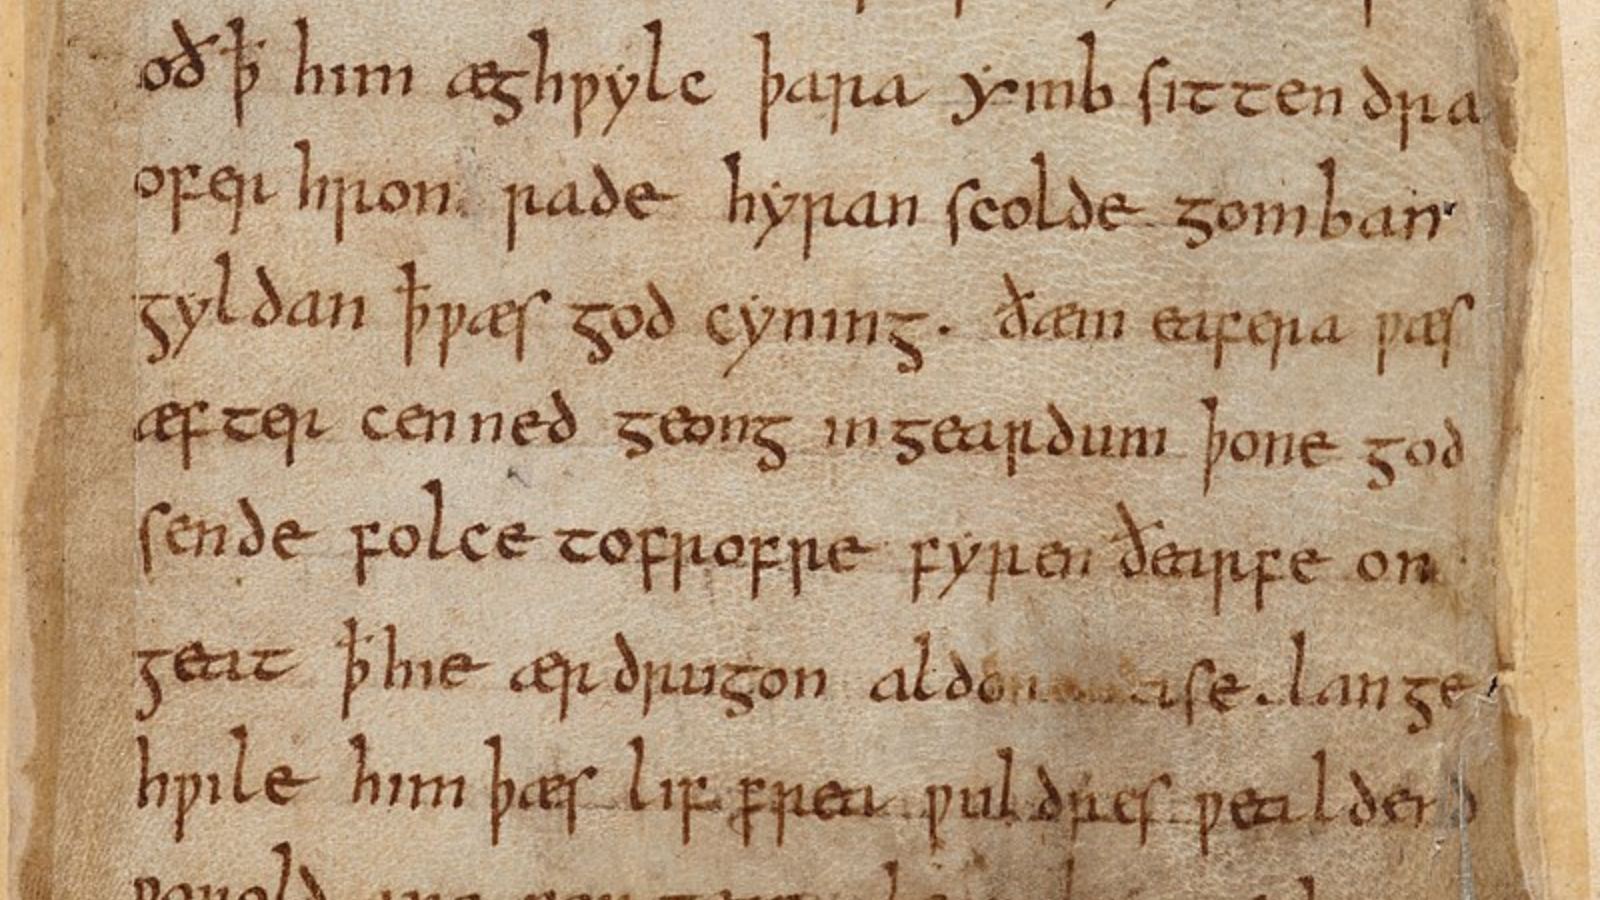 oð ꝥ him æghƿylc þara ymb sittendra
ofer hron rade hyran scolde gomban
gyldan ꝥ ƿæs god cyning. ðæm eafera ƿæs
æfter cenned geong in geardum þone god
sende folce to frofre fyren ðearfe on
geat ꝥ hie ær drugon aldo ase. lange
hƿile him þæs lif frea ƿuldres ƿealdend